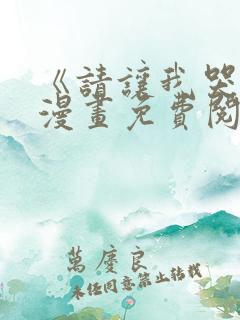 《請讓我哭
漫畫免費閱
萬慶良
未經同意禁止轉載